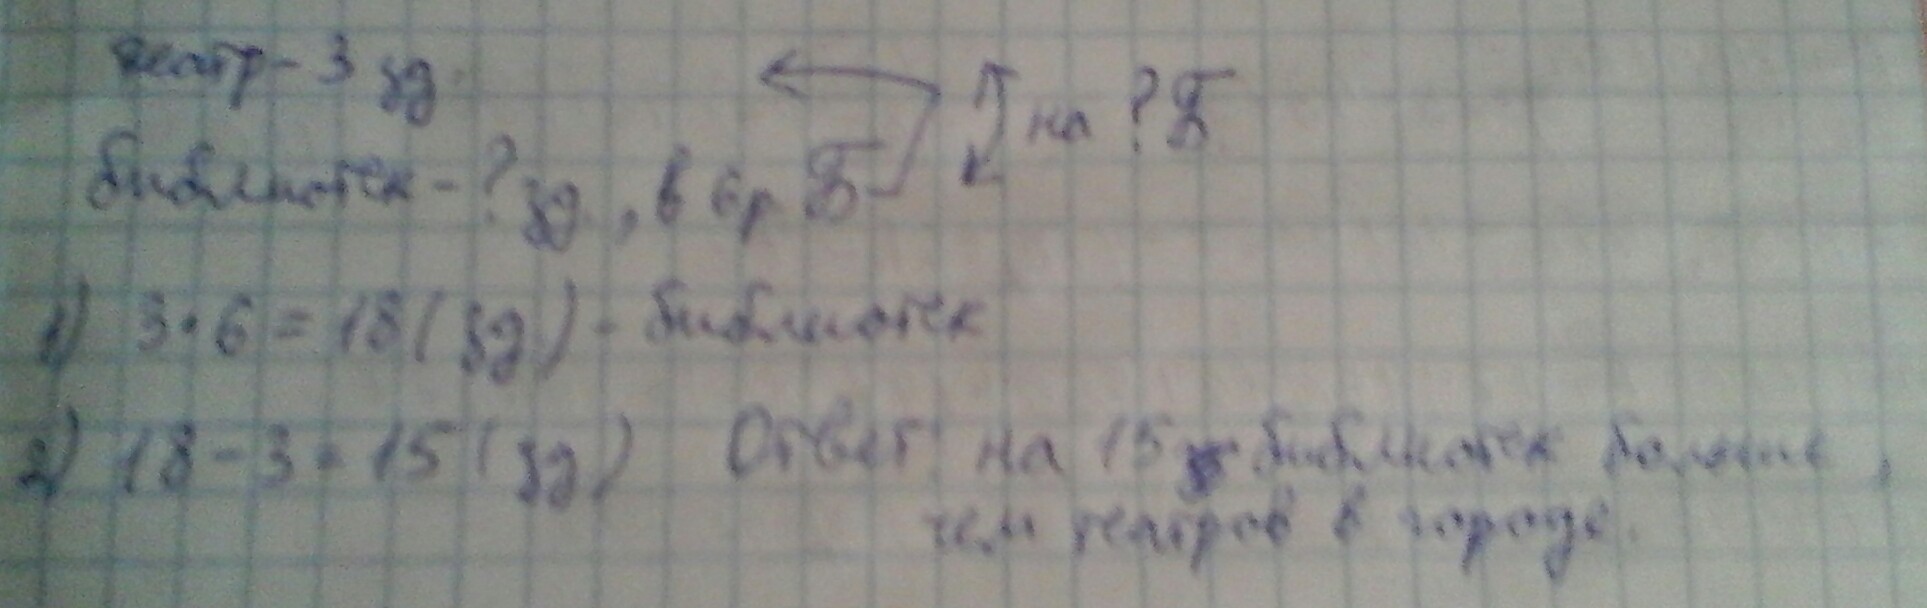 театр - 3 зд.
библиотек - ? зд., в 6 р Б
на ? Б
1) 3 · 6 = 18 (зд) - библиотек
2) 18 - 3 = 15 (зд)
Ответ: на 15 библиотек больше,
чем театров в городе.